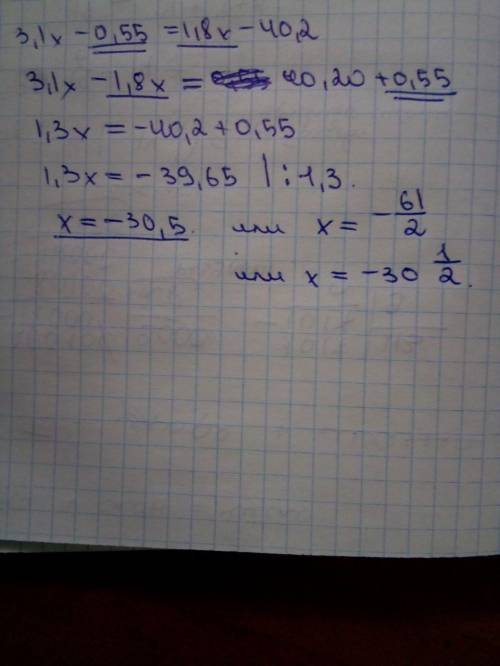 3,1x - 0,55 = 1,8x - 40,2
3,1x - 1,8x = -40,20 + 0,55
1,3x = -40,2 + 0,55
1,3x = -39,65 | : 1,3.
x = -30,5. или x = -61/2
или x = -30 1/2.